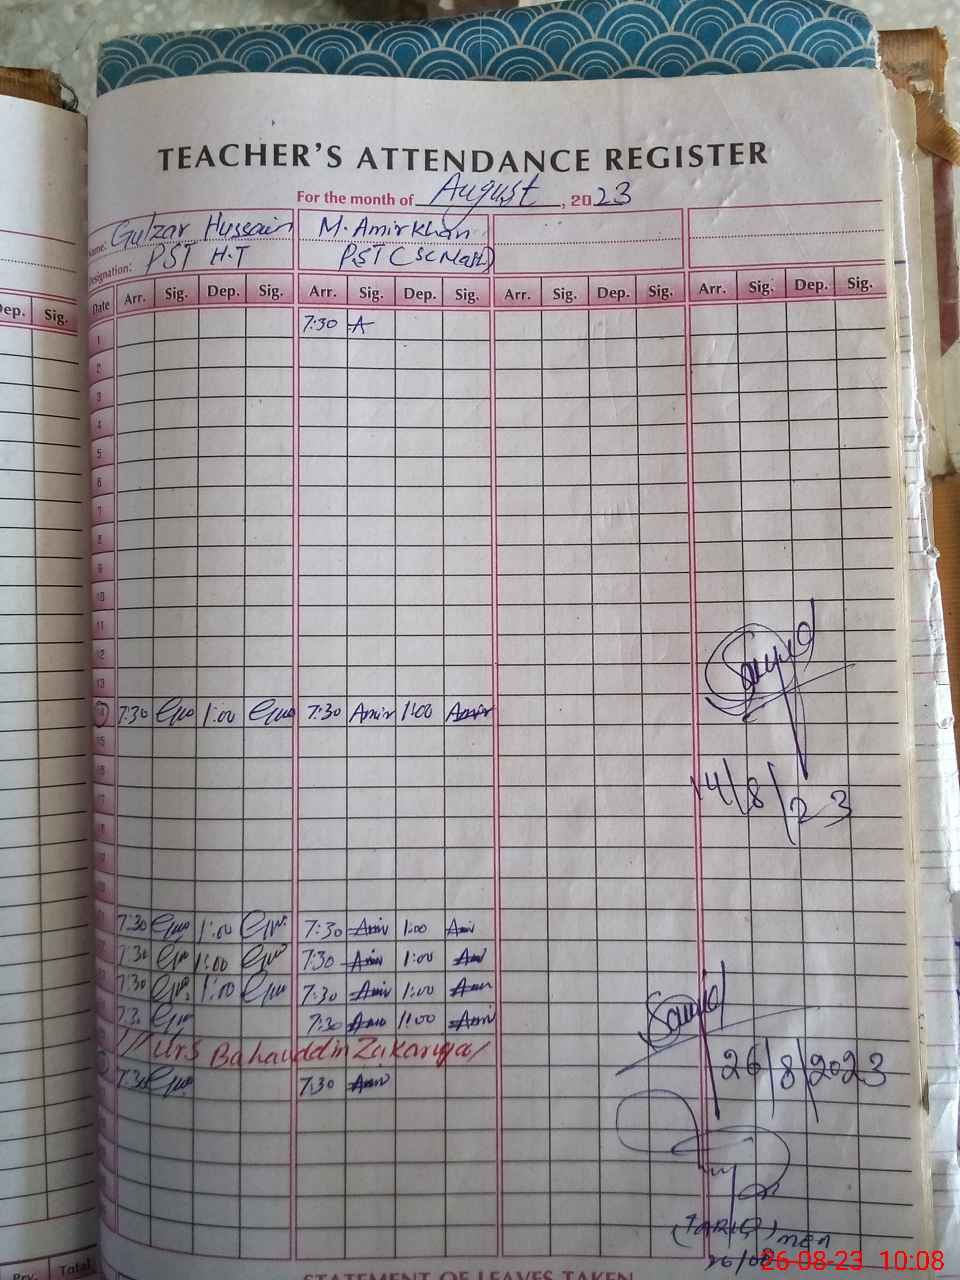 TEACHER'S ATTENDANCE REGISTER
For the month of August, 2023
Name: Gulzar Hussain M. Amir Khan
Designation: PST H.T PST (Sc Math)
Dep. Sig. Date Arr. Sig. Dep. Sig. Arr. Sig. Dep. Sig. Arr. Sig. Dep. Sig. Arr. Sig. Dep. Sig.
1 7:30 A
2
3
4
5
6
7
8
9
10
11
12
13
14 7:30 1:00 7:30 Amir 1:00 Amir
15
16
17
14/8/23
7:30 1:00 7:30 Amir 1:00 Amir
7:30 1:00 7:30 Amir 1:00
7:30 1:00 7:30 Amir 1:00
7:30 7:30 1:00
Urs Bahauddin Zakariya
26/8/2023
7:30 7:30 Amir
(TARIQ) MEA
26/08
26-08-23 10:08
Prv. Total
STATEMENT OF LEAVES TAKEN